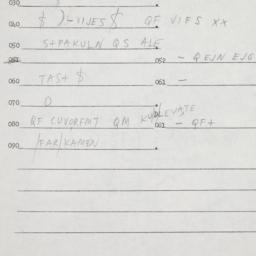 030
040 $ )-VIJES $ QF VIFS XX
050 S+PAKULN QS ALE
051 052 - QEJN EJG
060 TAS+ $ 061 -
070 0
080 QF CUVORFMT QM 081 - QF+
090 /FAR/KAMEN